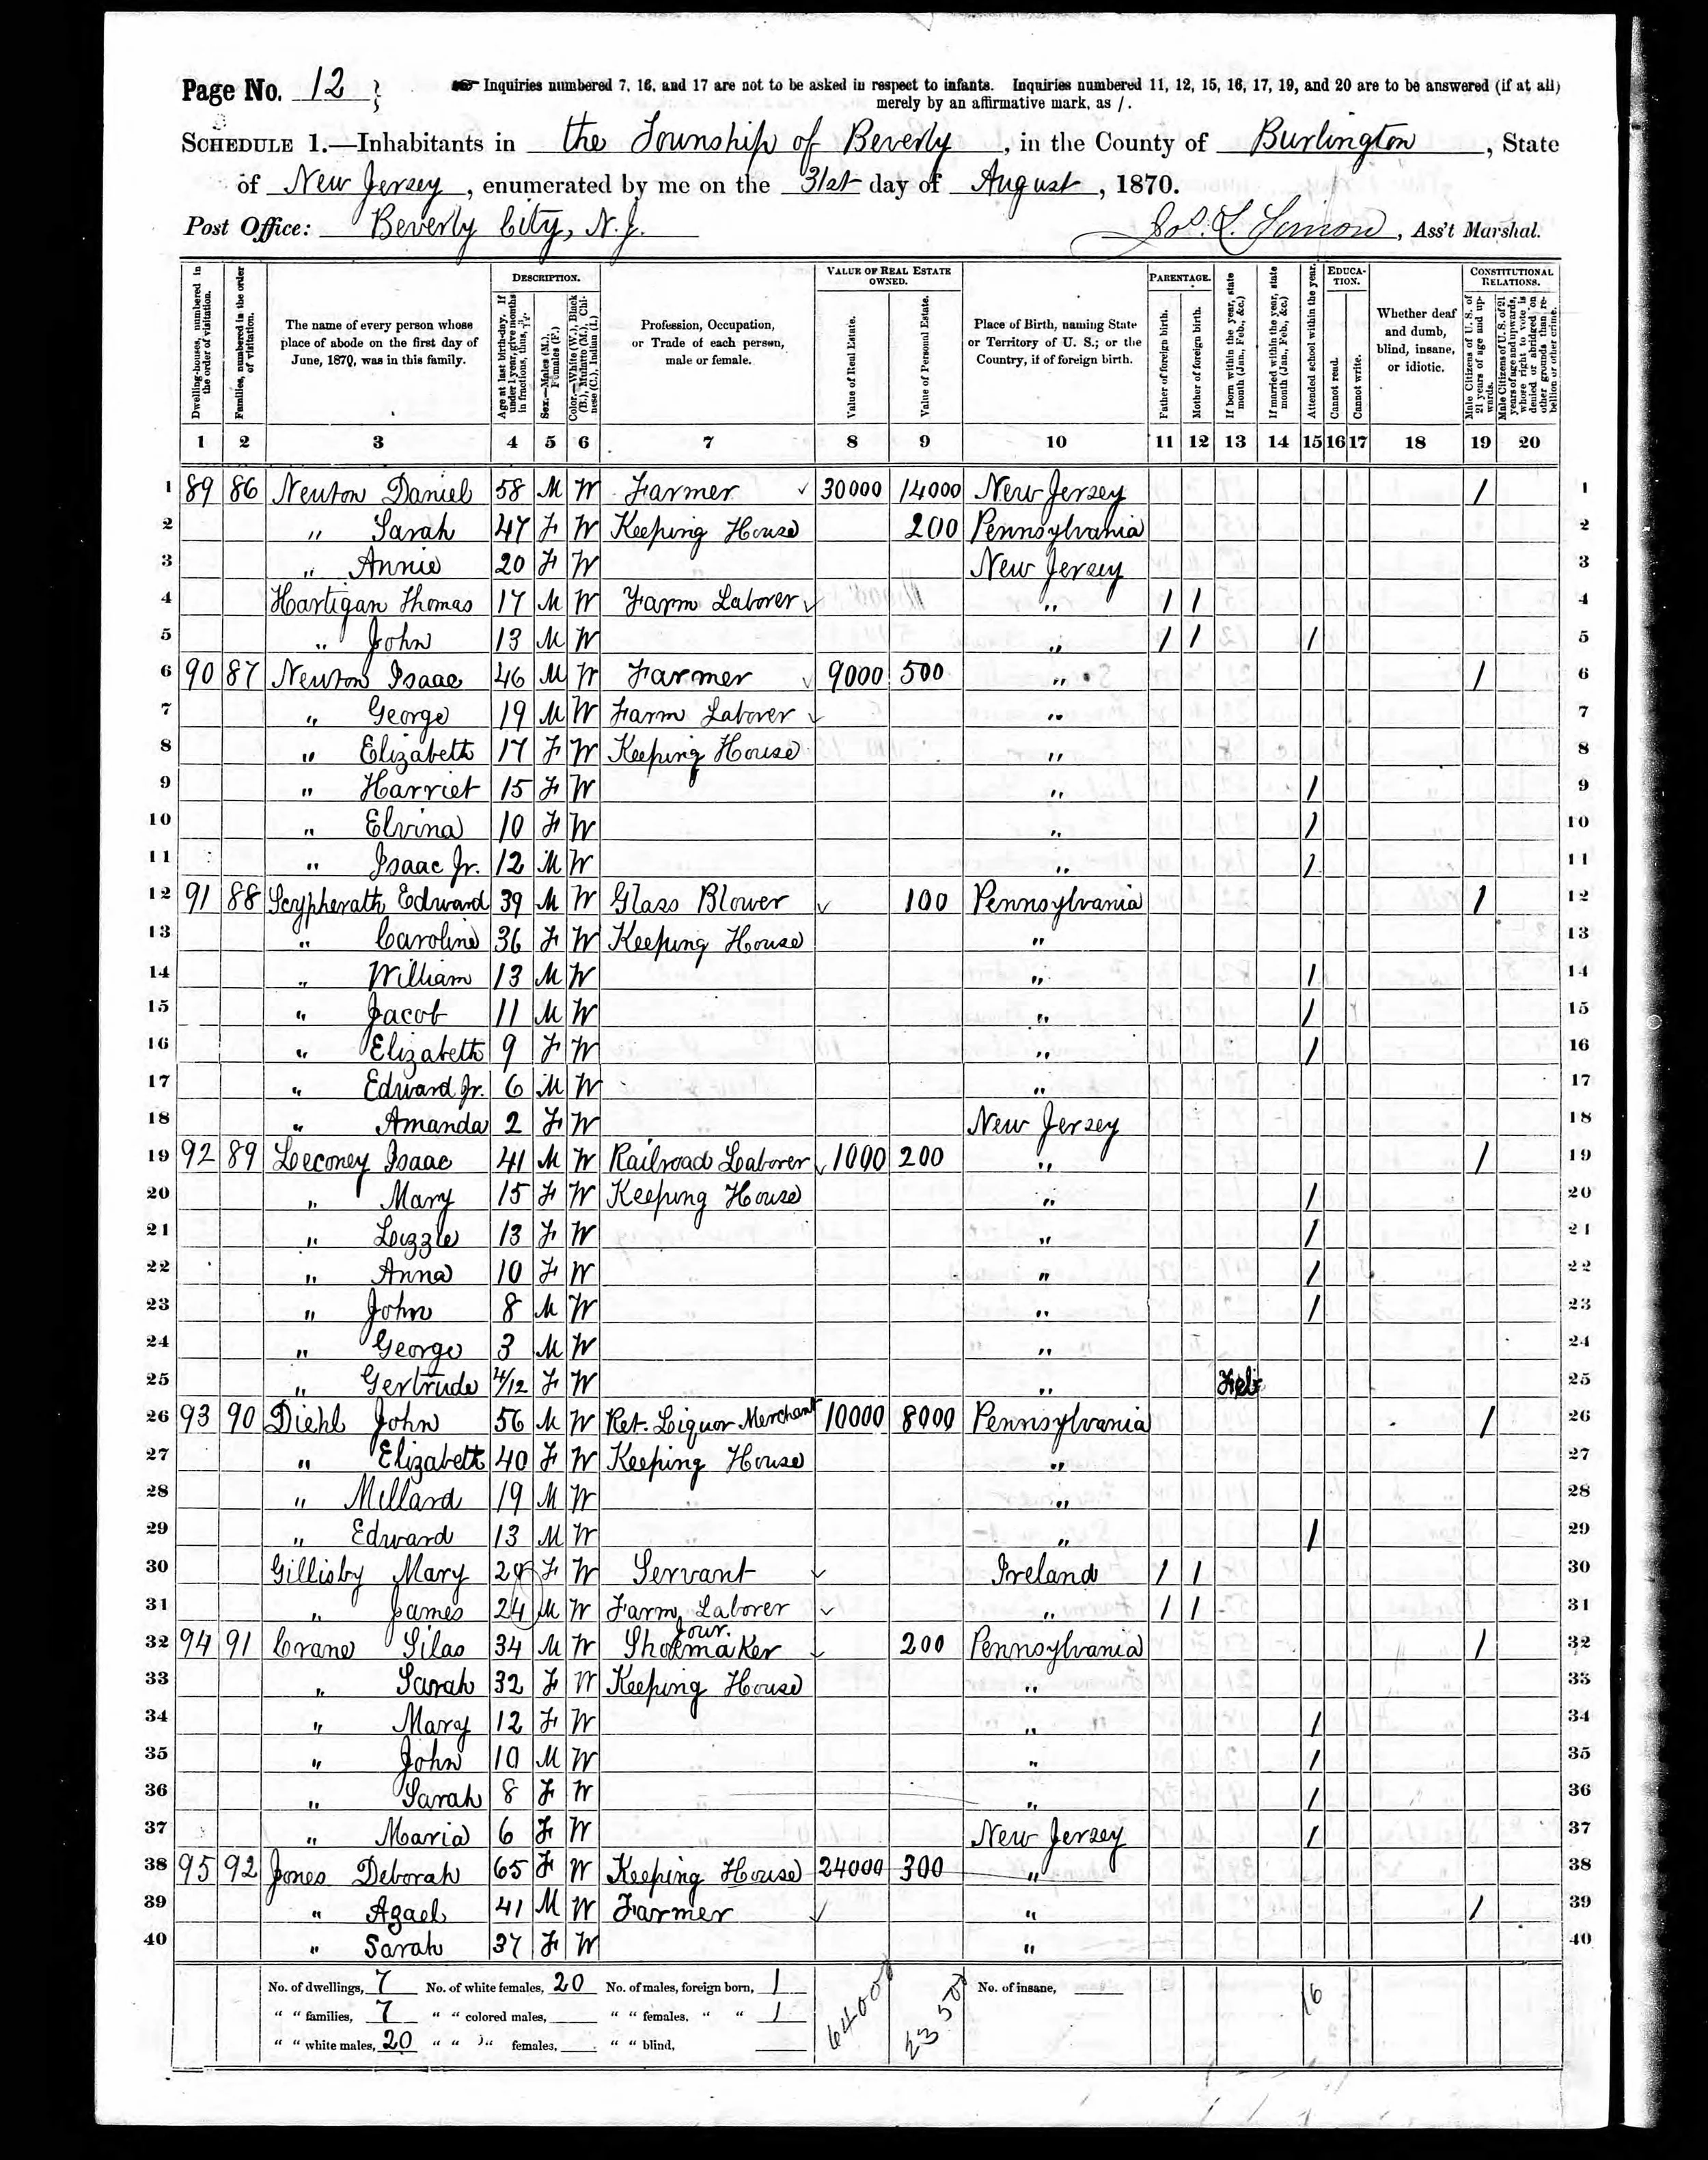 Page No. 12
Inquiries numbered 7, 16, and 17 are not to be asked in respect to infants. Inquiries numbered 11, 12, 15, 16, 17, 19, and 20 are to be answered (if at all)
merely by an affirmative mark, as /.
SCHEDULE 1.—Inhabitants in the Township of Beverly, in the County of Burlington, State
of New Jersey, enumerated by me on the 31st day of August, 1870.
Post Office: Beverly City, N.J.
Jos. L. Simon, Ass't Marshal.
Dwelling-houses, numbered in the order of visitation.
Families, numbered in the order of visitation.
The name of every person whose place of abode on the first day of June, 1870, was in this family.
DESCRIPTION.
Age at last birth-day. If under 1 year, give months in fractions, thus, 3/12
Sex.—Males (M.), Females (F.)
Color.—White (W.), Black (B.), Mulatto (M.), Chinese (C.), Indian (I.)
Profession, Occupation, or Trade of each person, male or female.
VALUE OF REAL ESTATE OWNED.
Value of Real Estate.
Value of Personal Estate.
Place of Birth, naming State or Territory of U. S.; or the Country, if of foreign birth.
PARENTAGE.
Father of foreign birth.
Mother of foreign birth.
If born within the year, state month (Jan., Feb., &c.)
If married within the year, state month (Jan., Feb., &c.)
Attended school within the year.
EDUCATION.
Cannot read.
Cannot write.
Whether deaf and dumb, blind, insane, or idiotic.
CONSTITUTIONAL RELATIONS.
Male Citizens of U. S. of 21 years of age and upwards.
Male Citizens of U. S. of 21 years of age and upwards, whose right to vote is denied or abridged on other grounds than rebellion or other crime.
1 2 3 4 5 6 7 8 9 10 11 12 13 14 15 16 17 18 19 20
1 89 86 Newton Daniel 58 M W Farmer 30000 14000 New Jersey / 1
2 " Sarah 47 F W Keeping House 200 Pennsylvania 2
3 " Annie 20 F W New Jersey 3
4 Hartigan Thomas 17 M W Farm Laborer " / / 4
5 " John 13 M W " / / / 5
6 90 87 Newton Isaac 46 M W Farmer 9000 500 " / 6
7 " George 19 M W Farm Laborer " 7
8 " Elizabeth 17 F W Keeping House " 8
9 " Harriet 15 F W " / 9
10 " Elvina 10 F W " / 10
11 " Isaac Jr. 12 M W " / 11
12 91 88 Scypherath Edward 39 M W Glass Blower 100 Pennsylvania / 12
13 " Caroline 36 F W Keeping House " 13
14 " William 13 M W " / 14
15 " Jacob 11 M W " / 15
16 " Elizabeth 9 F W " / 16
17 " Edward Jr. 6 M W " 17
18 " Amanda 2 F W New Jersey 18
19 92 89 Leconey Isaac 41 M W Railroad Laborer 1000 200 " / 19
20 " Mary 15 F W Keeping House " / 20
21 " Lizzie 13 F W " / 21
22 " Anna 10 F W " / 22
23 " John 8 M W " / 23
24 " George 3 M W " 24
25 " Gertrude 4/12 F W " Feb 25
26 93 90 Diehl John 56 M W Ret. Liquor Merchant 10000 8000 Pennsylvania / 26
27 " Elizabeth 40 F W Keeping House " 27
28 " Millard 19 M W " 28
29 " Edward 13 M W " / 29
30 Gillisby Mary 29 F W Servant Ireland / / 30
31 " James 24 M W Farm Laborer " / / 31
32 94 91 Crane Silas 34 M W Jour. Shoemaker 200 Pennsylvania / 32
33 " Sarah 32 F W Keeping House " 33
34 " Mary 12 F W " / 34
35 " John 10 M W " / 35
36 " Sarah 8 F W " / 36
37 " Maria 6 F W New Jersey / 37
38 95 92 Jones Deborah 65 F W Keeping House 24000 300 " 38
39 " Azael 41 M W Farmer " / 39
40 " Sarah 37 F W " 40
No. of dwellings, 7 No. of white females, 20 No. of males, foreign born, 1 64000 23500 No. of insane, 16
" " families, 7 " " colored males, " " females, " " 1
" " white males, 20 " " " females, " " blind,